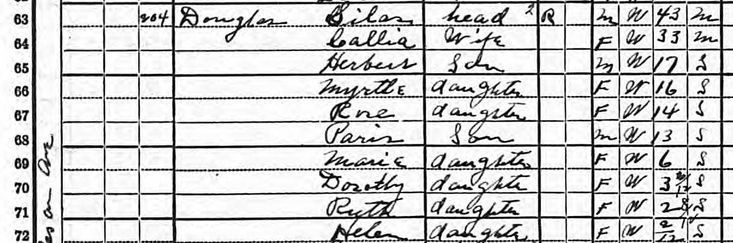 63 204 Douglas Silas head 2 R m W 43 m
64 Callia Wife F W 33 m
65 Herbert Son m W 17 S
66 Myrtle daughter F W 16 S
67 Rose daughter F W 14 S
68 Paris Son m W 13 S
69 Marie daughter F W 6 S
70 Dorothy daughter F W 3 S
71 Ruth daughter F W 2 S
72 Helen daughter F W 2/12 S